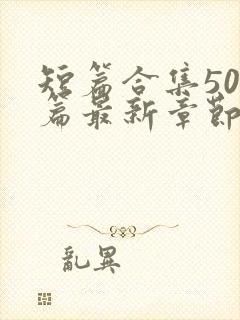 短篇合集50
篇最新章節
亂異